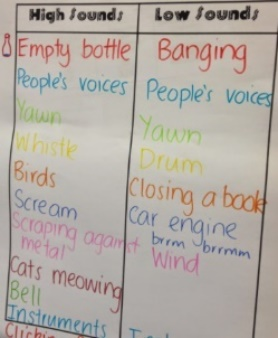 High Sounds
Low Sounds
Empty bottle
Banging
People's voices
People's voices
Yawn
Yawn
Whistle
Drum
Birds
Closing a book
Scream
Car engine
brrm brrmm
Scraping against
metal
Wind
Cats meowing
Bell
Instruments